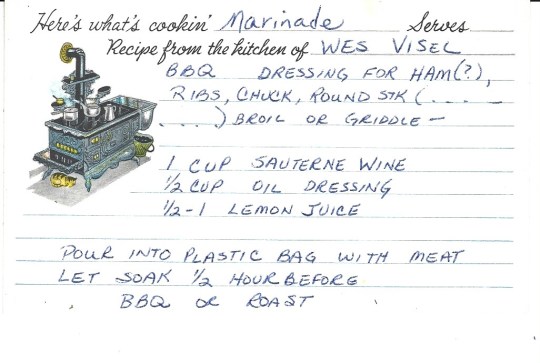 Here's what's cookin' Marinade Serves
Recipe from the kitchen of WES VISEL
BBQ DRESSING FOR HAM(?),
RIBS, CHUCK, ROUND STK (. . . .
. . . .) BROIL OR GRIDDLE –
1 CUP SAUTERNE WINE
1/2 CUP OIL DRESSING
1/2-1 LEMON JUICE
POUR INTO PLASTIC BAG WITH MEAT
LET SOAK 1/2 HOUR BEFORE
BBQ OR ROAST